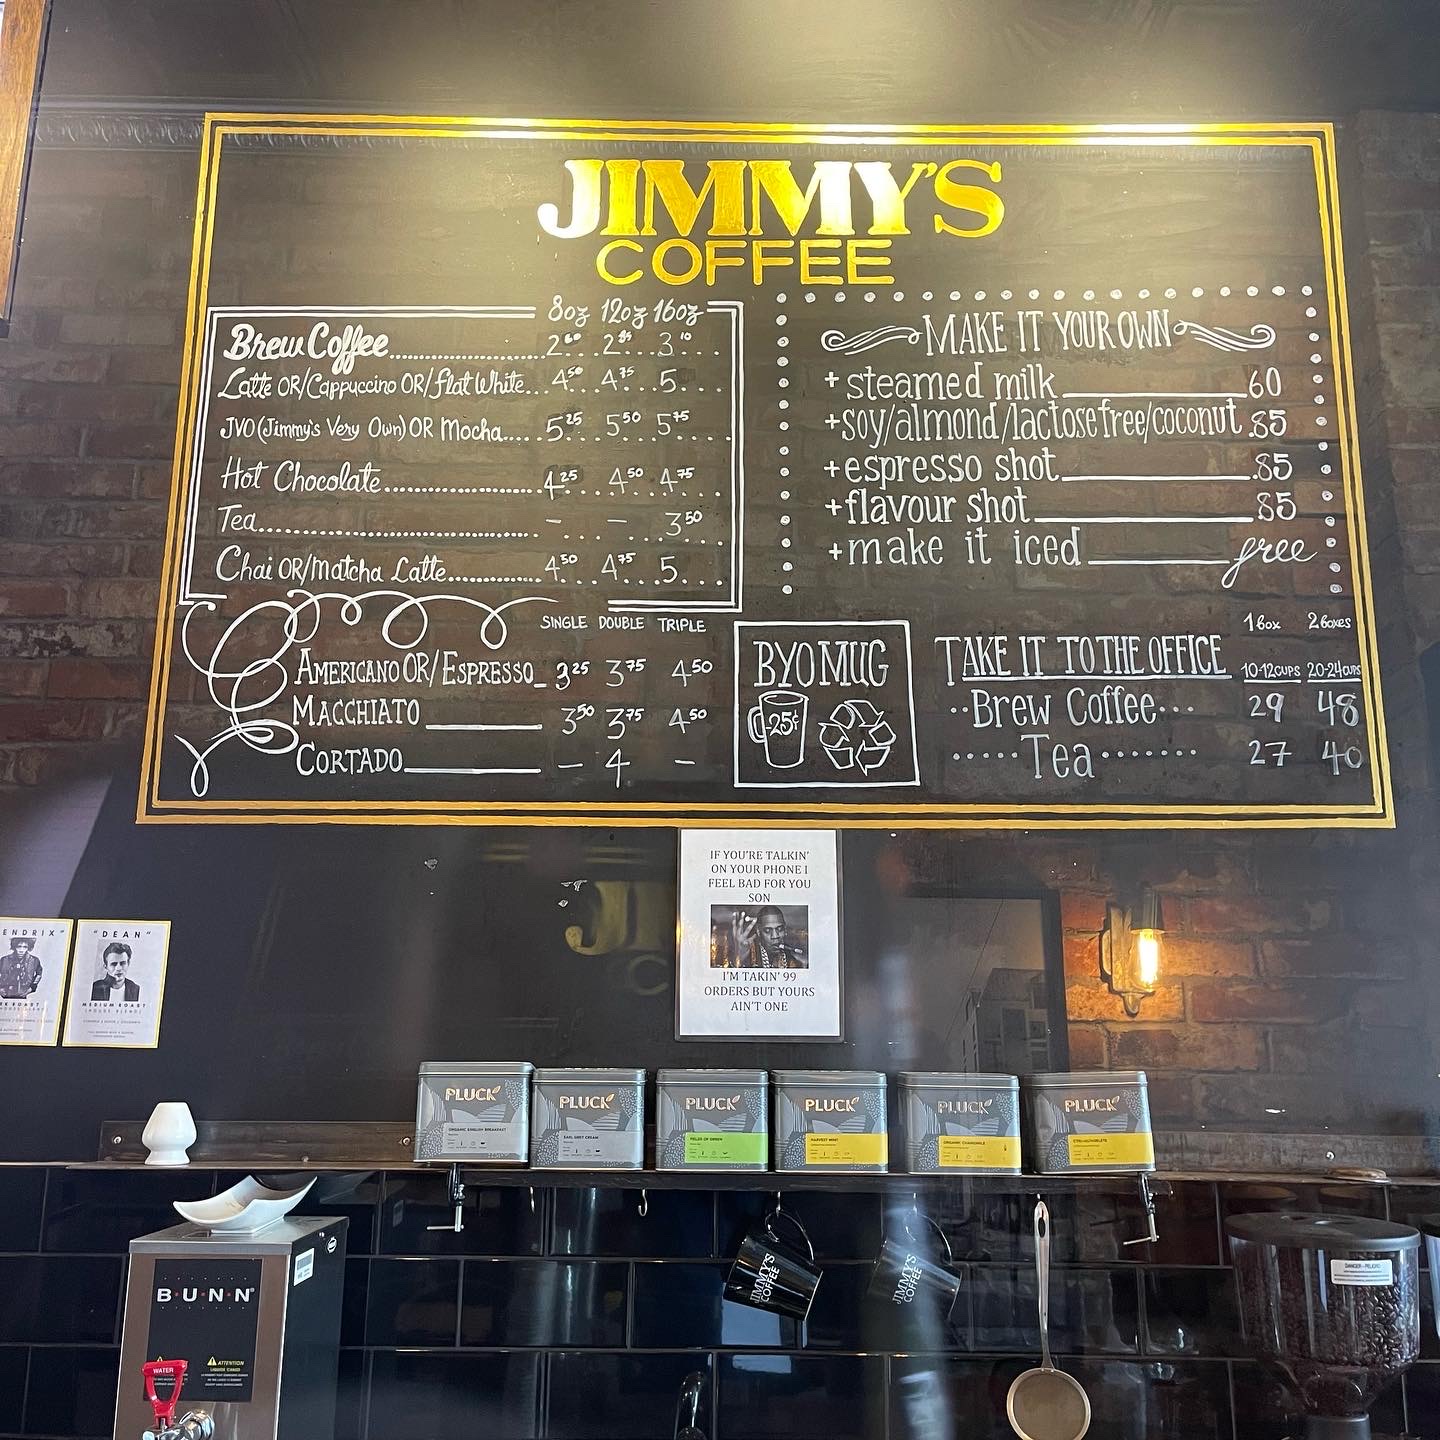 JIMMY'S
COFFEE
8oz 12oz 16oz
Brew Coffee 2.60 2.85 3.10
Latte OR/Cappuccino OR/flat White 4.50 4.75 5
JVO (Jimmy's Very Own) OR Mocha 5.25 5.50 5.75
Hot Chocolate 4.25 4.50 4.75
Tea - - 3.50
Chai OR/matcha Latte 4.50 4.75 5
SINGLE DOUBLE TRIPLE
AMERICANO OR/ESPRESSO 3.25 3.75 4.50
MACCHIATO 3.50 3.75 4.50
CORTADO - 4 -
MAKE IT YOUR OWN
+ steamed milk 60
+soy/almond/lactose free/coconut .85
+espresso shot .85
+flavour shot .85
+make it iced free
BYO MUG
-25¢
1 box 2 boxes
TAKE IT TO THE OFFICE 10-12 CUPS 20-24 CUPS
Brew Coffee 29 48
Tea 27 40
IF YOU'RE TALKIN'
ON YOUR PHONE I
FEEL BAD FOR YOU
SON
I'M TAKIN' 99
ORDERS BUT YOURS
AIN'T ONE
ENDRIX"
RK ROAST
"DEAN"
MEDIUM ROAST
(HOUSE BLEND)
PLUCK
ORGANIC ENGLISH BREAKFAST
PLUCK
EARL GREY CREAM
PLUCK
FIELDS OF GREEN
PLUCK
HARVEST MINT
PLUCK
ORGANIC CHAMOMILE
PLUCK
BUNN
WATER
ATTENTION
JIMMY'S
COFFEE
JIMMY'S
COFFEE
DANGER - PELIGRO